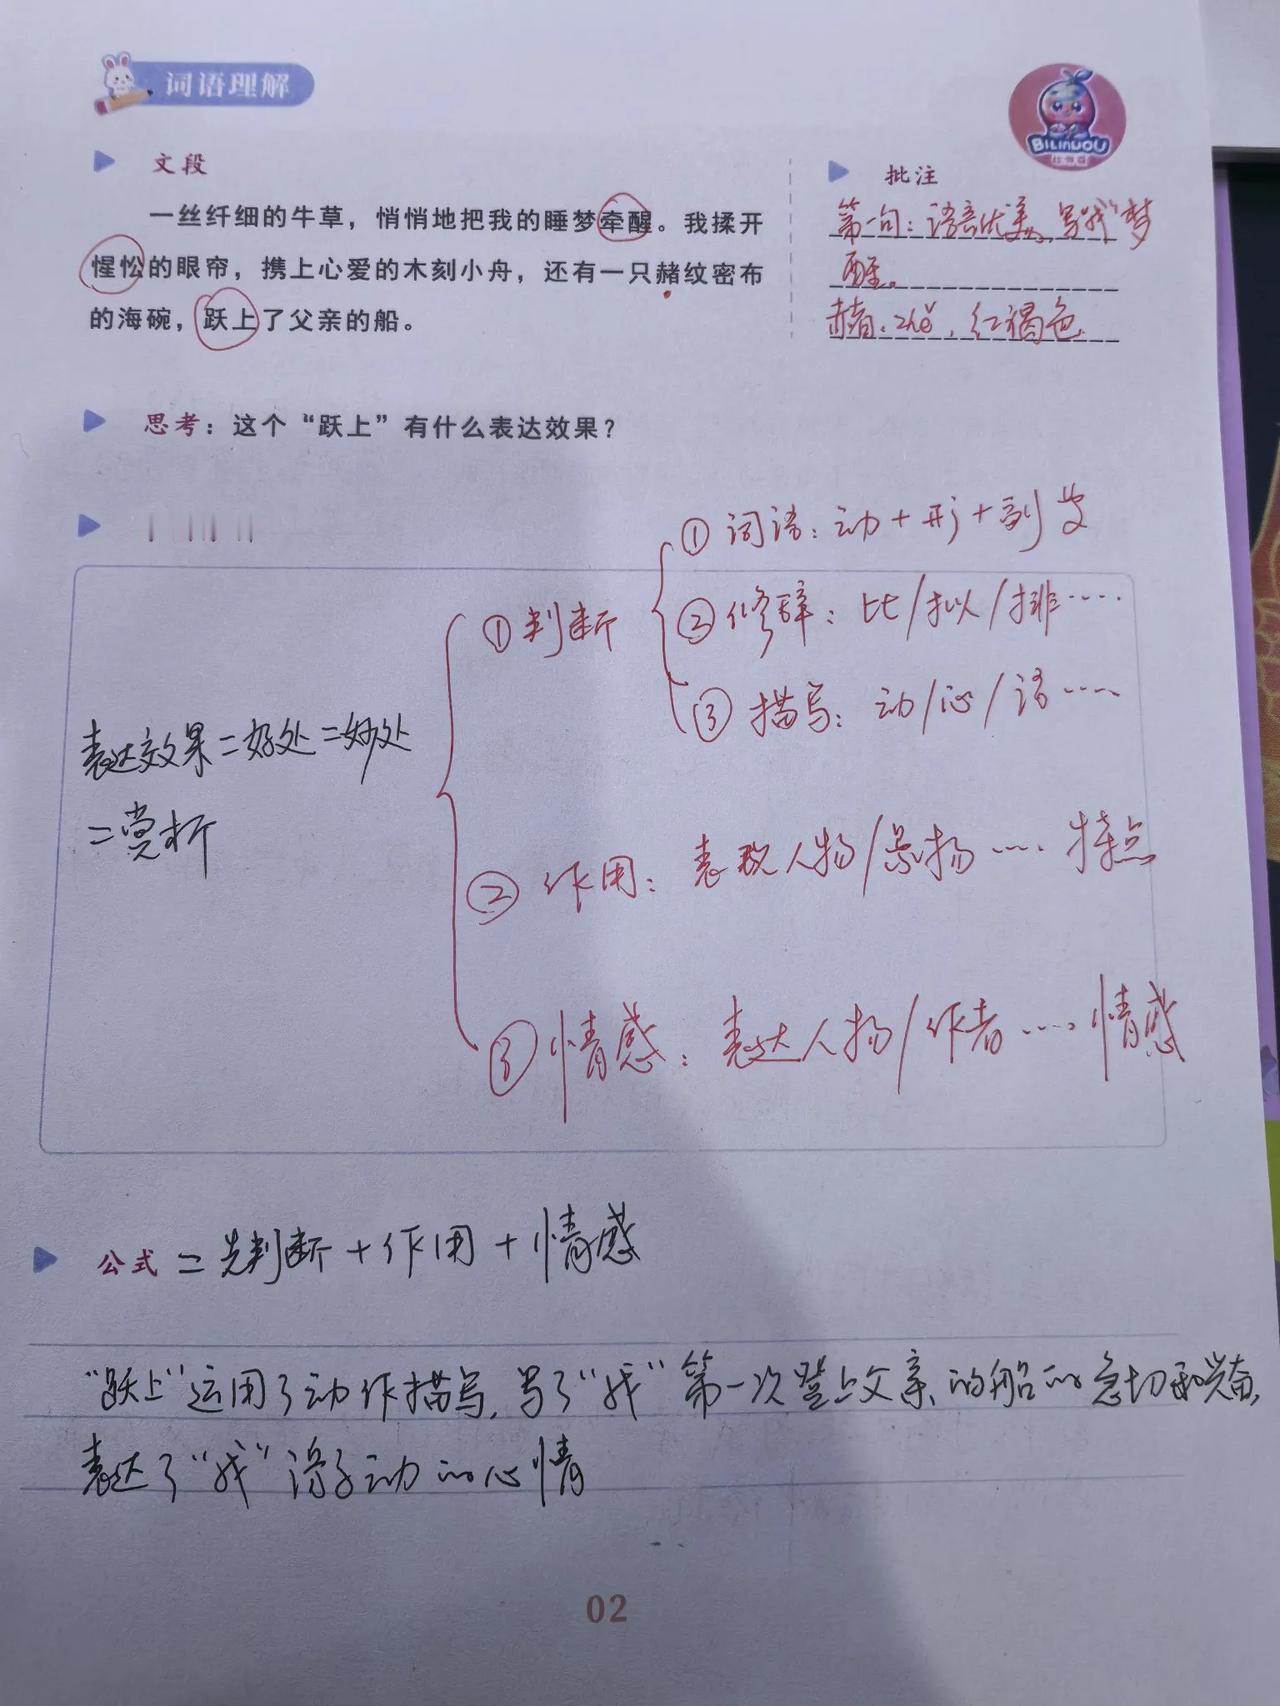 词语理解
BILINUOU
文段
一丝纤细的牛草，悄悄地把我的睡梦牵醒。我揉开
惺忪的眼帘，携上心爱的木刻小舟，还有一只赭纹密布
的海碗，跃上了父亲的船。
批注
第一句：语言优美，写"我"梦
醒。
赭：zhě，红褐色
思考：这个“跃上”有什么表达效果？
①词语：动+形+副
①判断
②修辞：比/拟/排……
③描写：动/心/语……
表达效果=好处=妙处
=赏析
②作用：表现人物/景物……特点
③情感：表达人物/作者……情感
公式=先判断+作用+情感
“跃上”运用了动作描写，写了“我”第一次登上父亲的船的急切和兴奋，
表达了“我”激动的心情
02